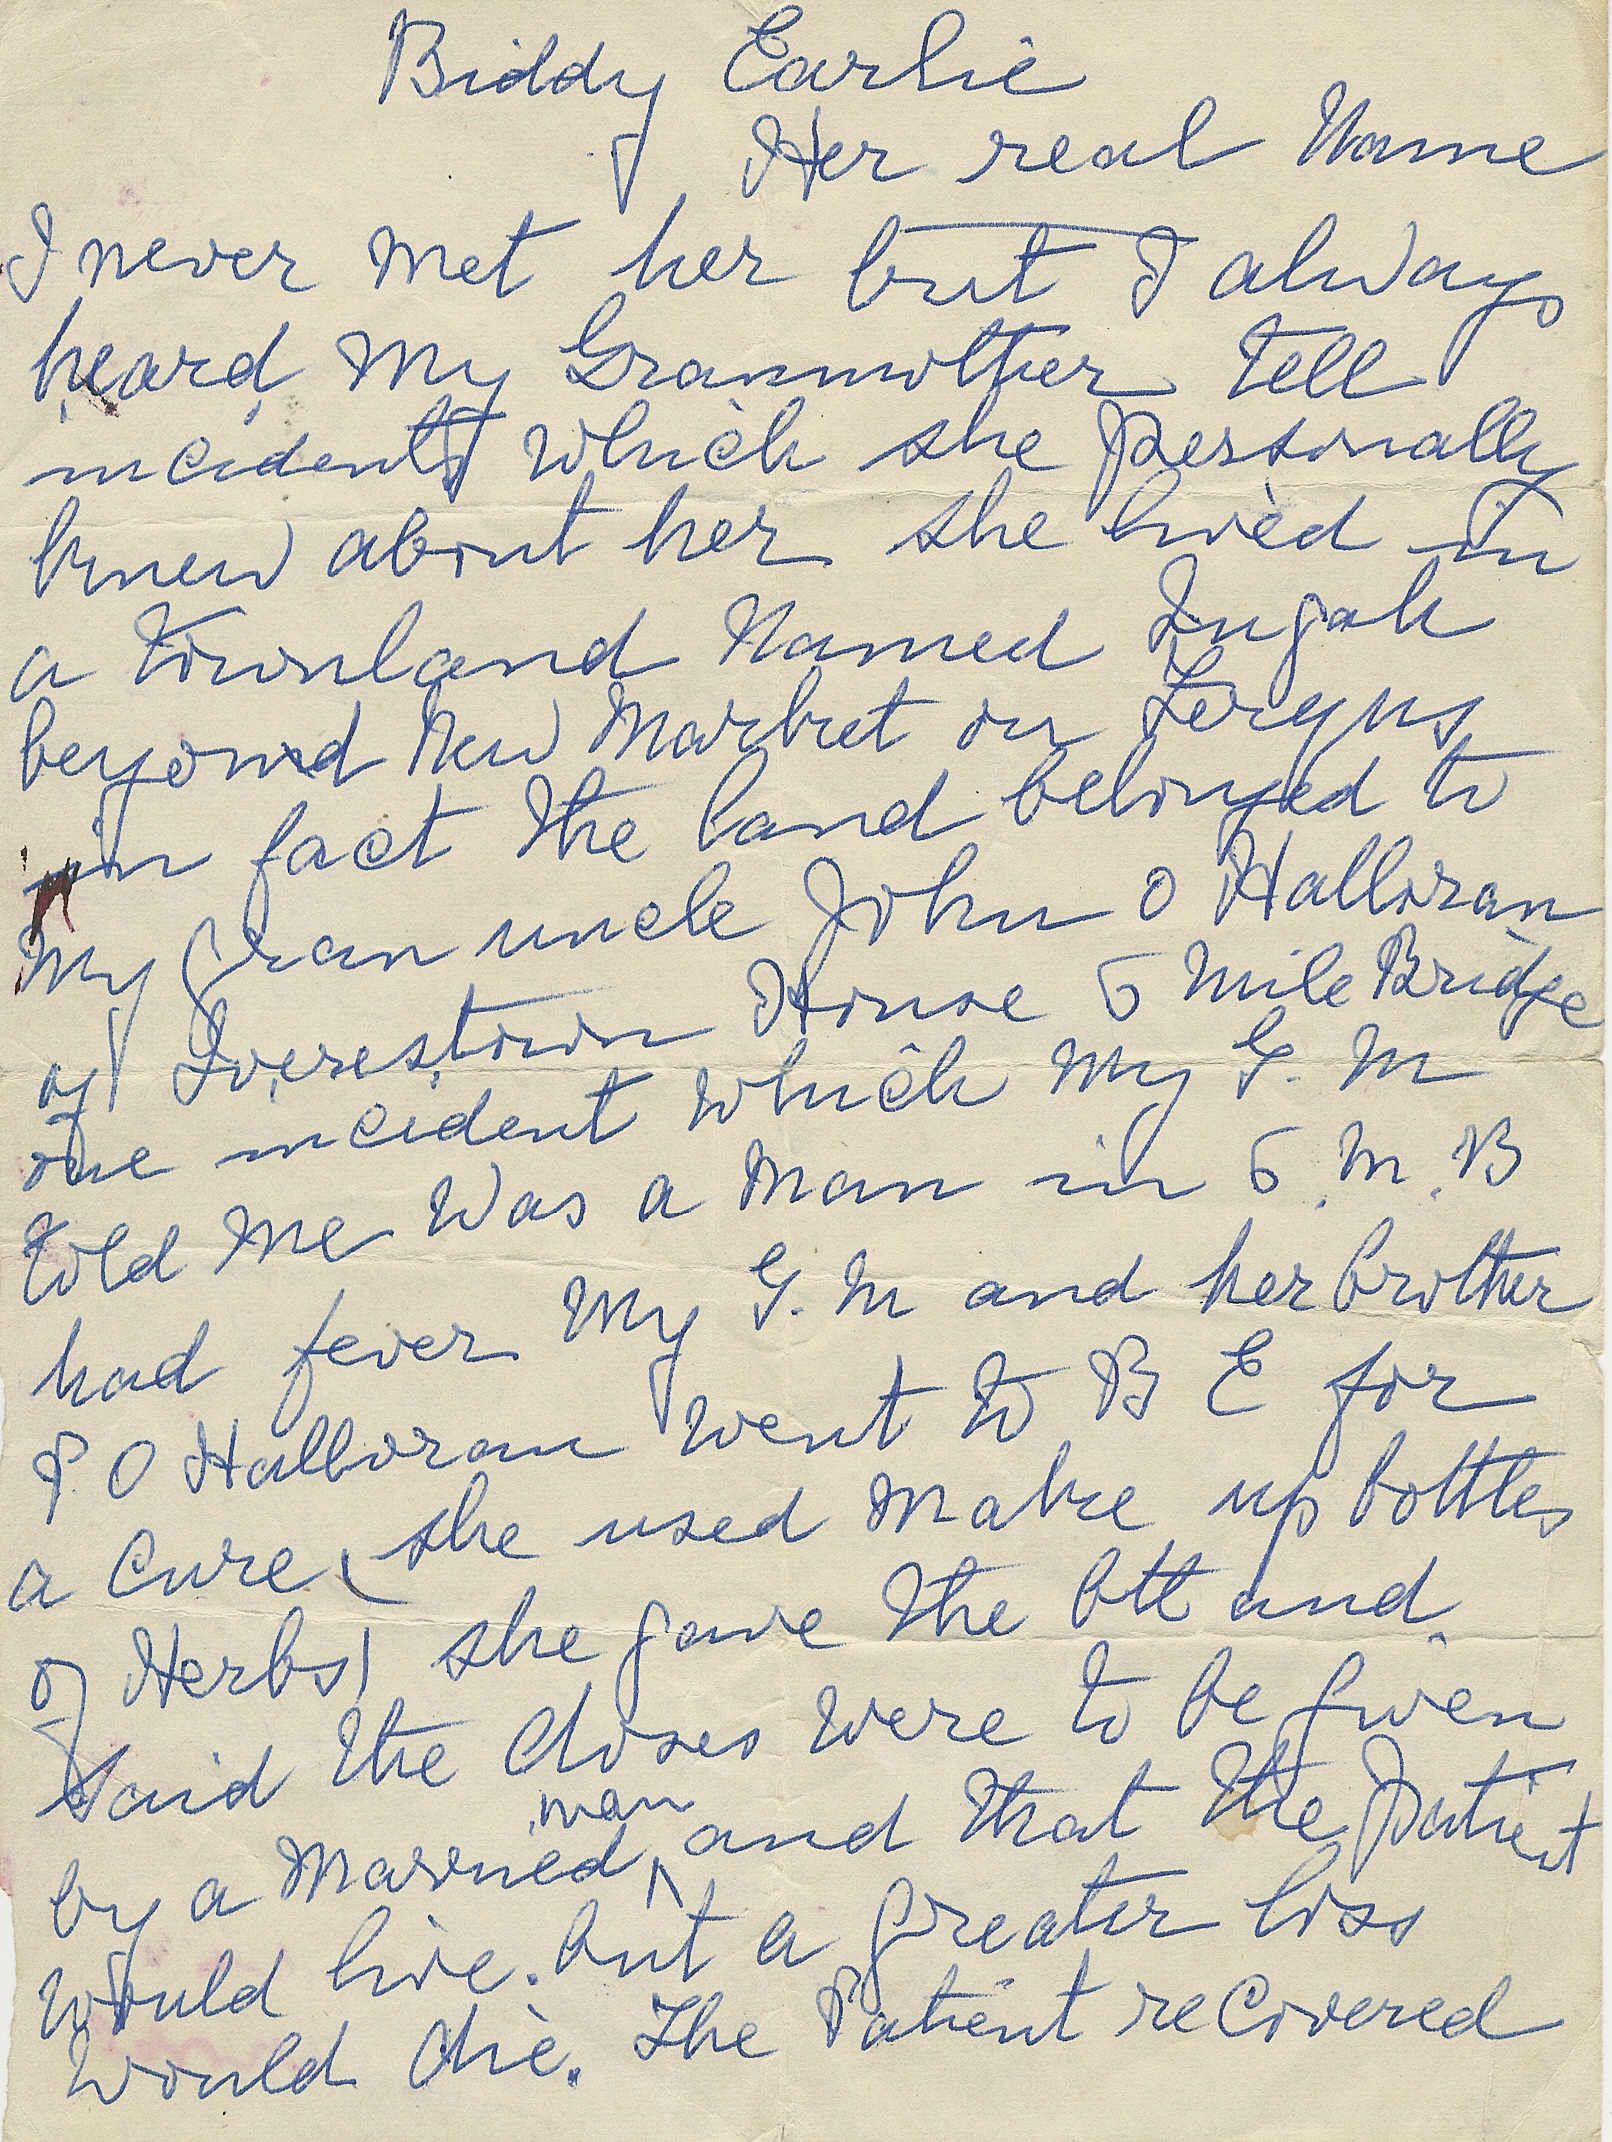 Biddy Earlie
Her real Name
I never met her but I always
heard my Granmother tell
incidents which she personally
knew about her she lived in
a Townland Named
beyond New Market on Fergus
in fact the land belonged to
my Gran uncle John O Halloran
of House 5 Mile Bridge
one incident which my G. M
told me was a man in 5 . M . B
had fever my G. M and her brother
P. O Halloran went to B E for
a cure ( she used make up bottles
of Herbs ) she gave the btt and
said the doses were to be given
by a married man and that the patient
would live. but a greater loss
would die. The Patient recovered